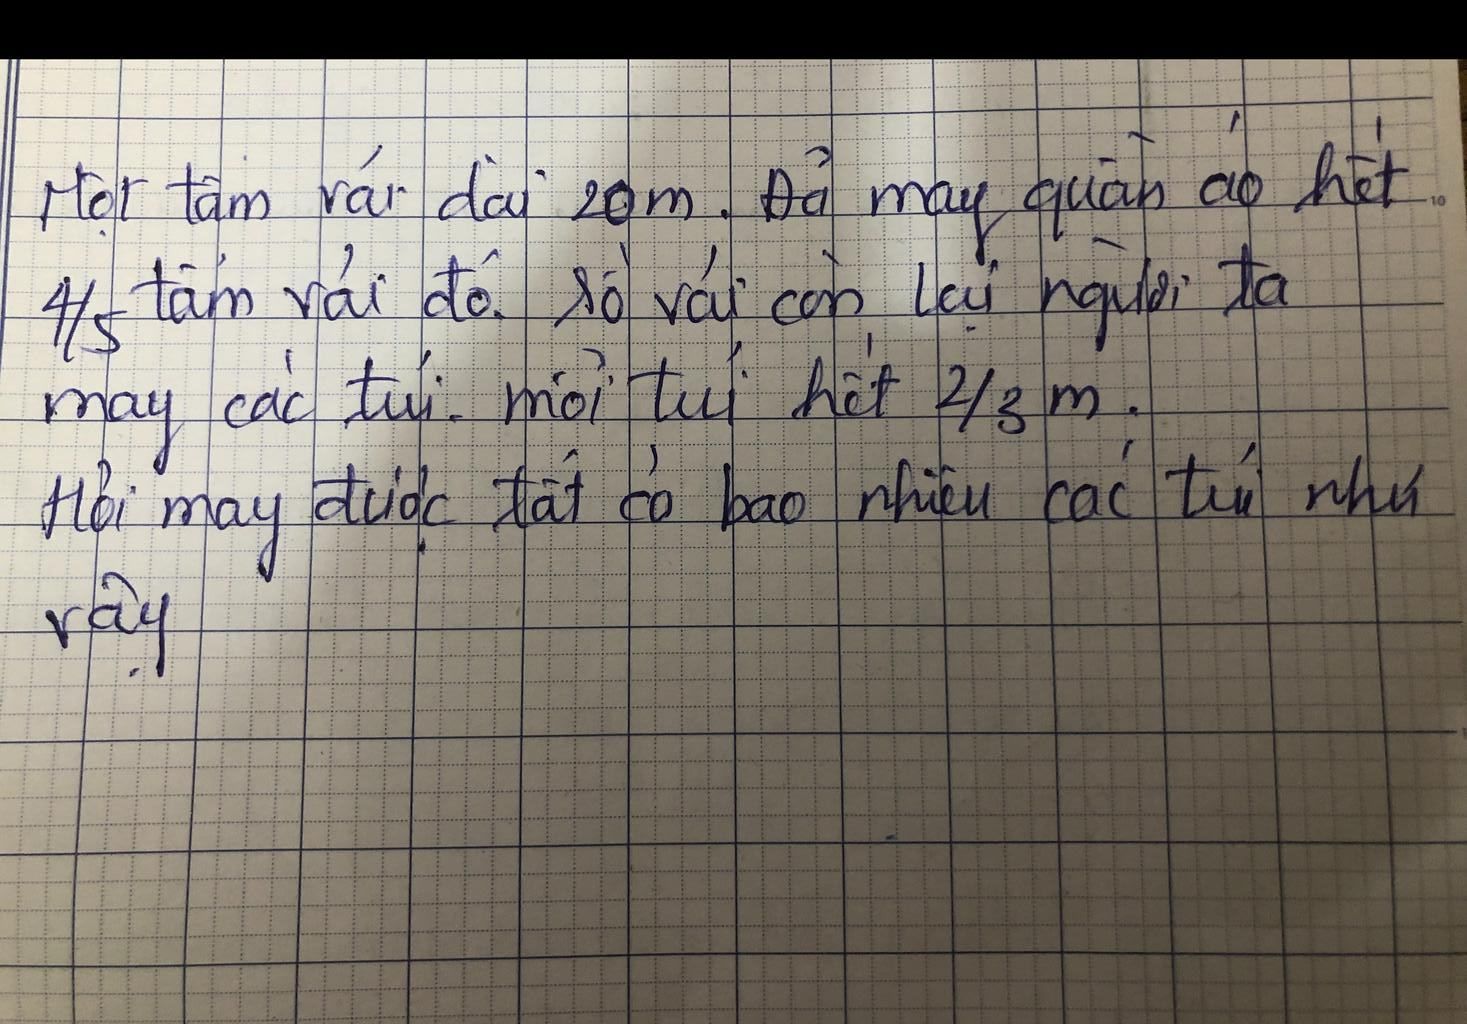 Một tấm vải dài 20m. Đã may quần áo hết
4/5 tấm vải đó. Số vải còn lại người ta
may các túi. mỗi túi hết 2/3 m.
Hỏi may được tất cả bao nhiêu các túi như
vậy
10